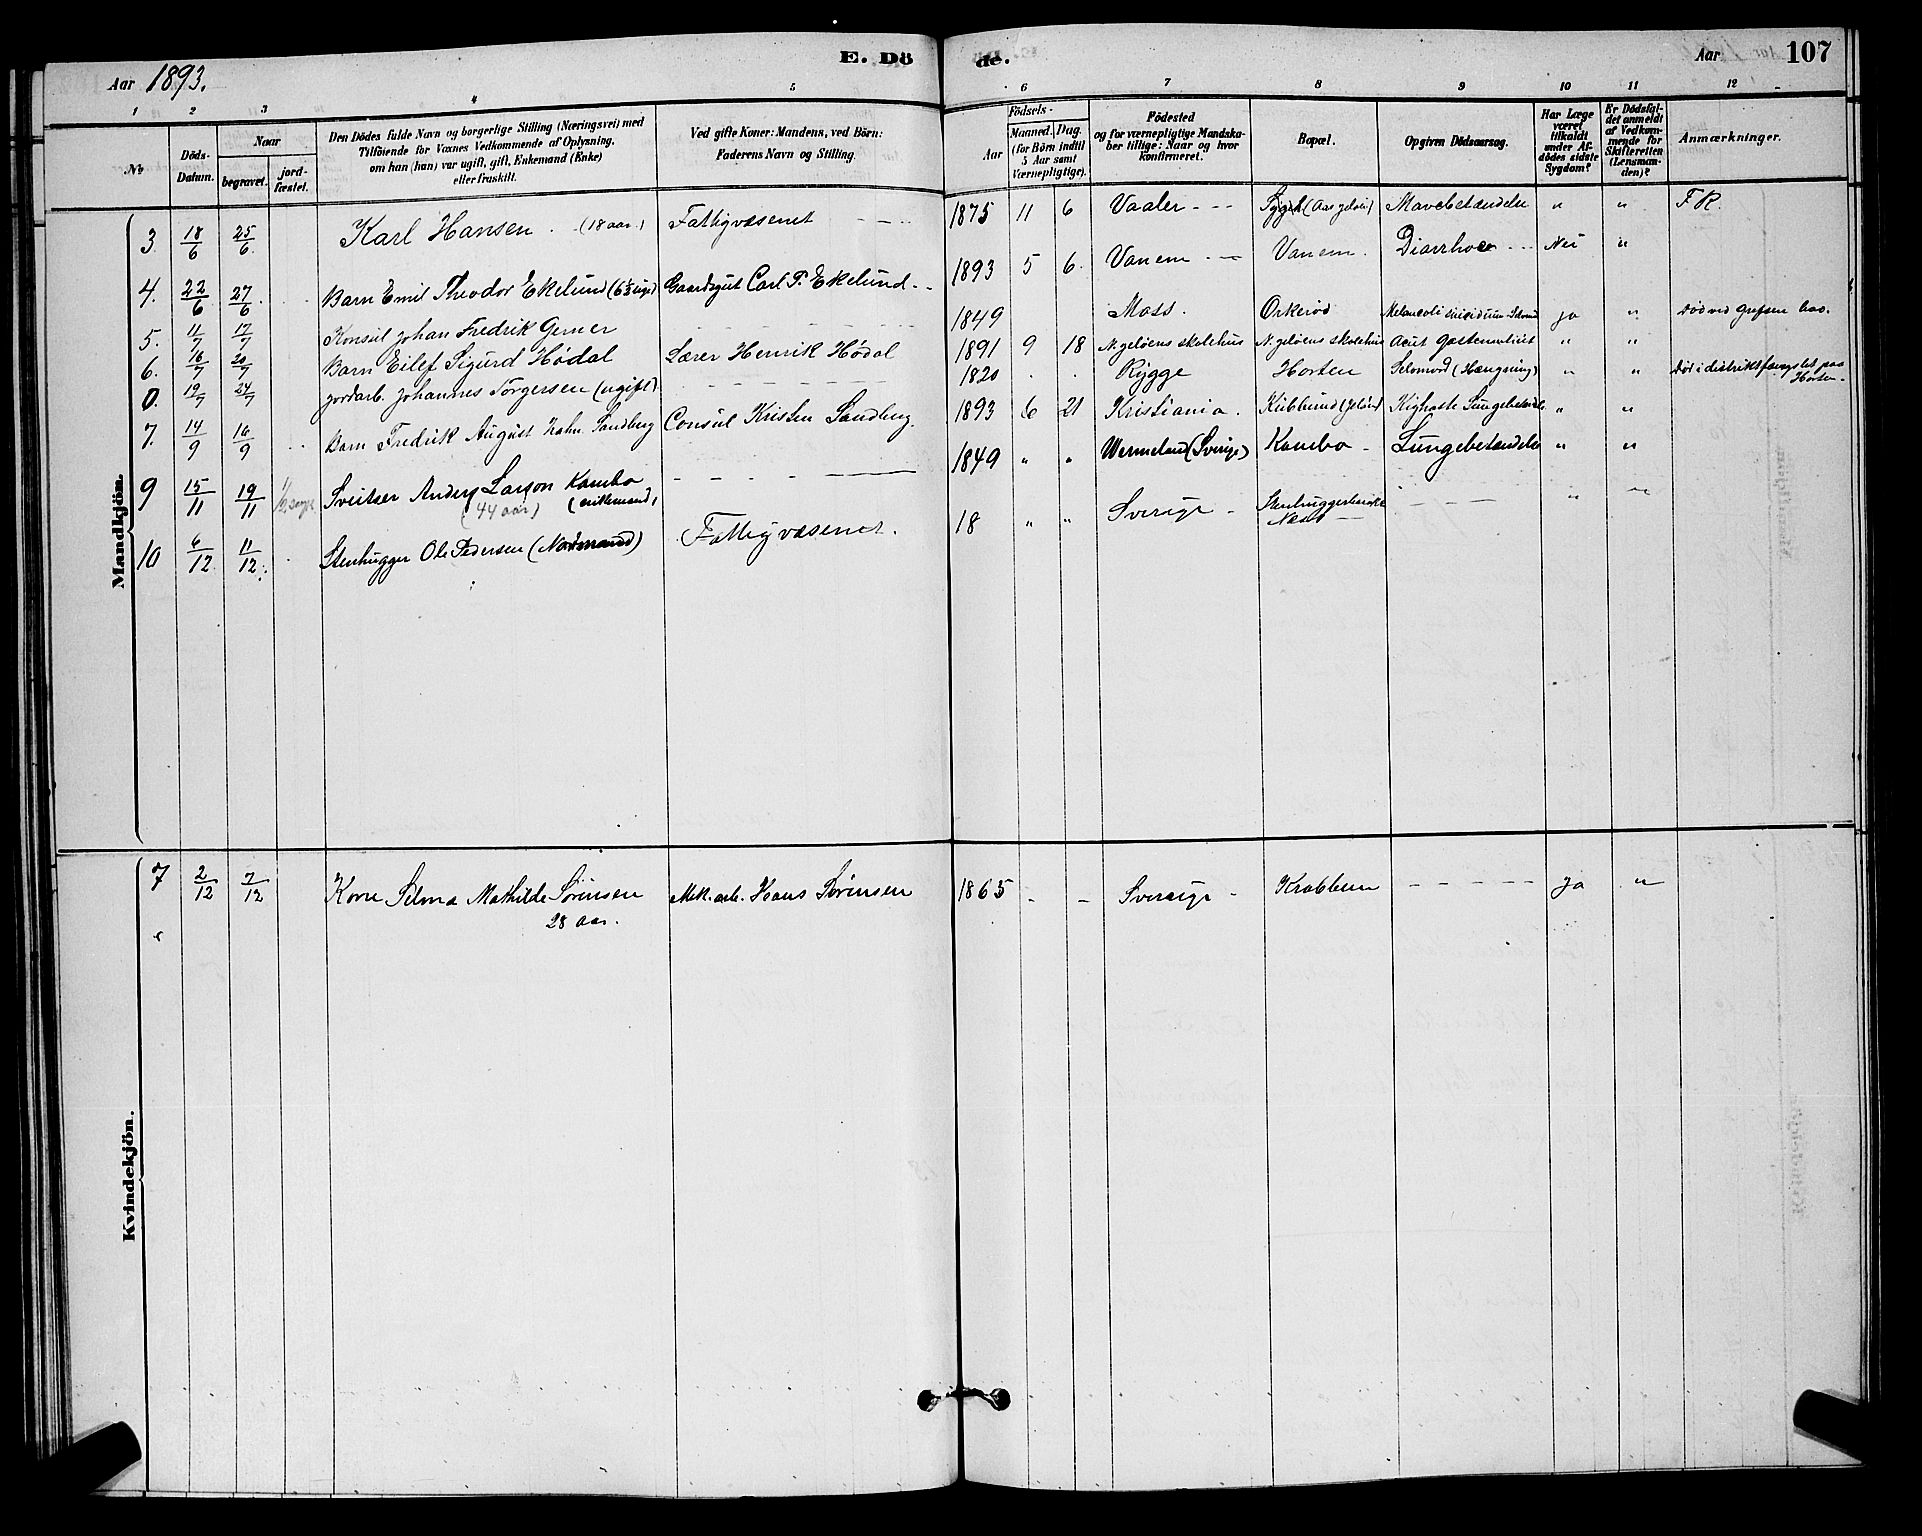 E. Dö
de.
Aar 1893.
Aar 107
1 2 3 4 5 6 7 8 9 10 11 12
No
Döds-Datum.
Naar
begravet.
jord-fæstet.
Den Dödes fulde Navn og borgerlige Stilling (Næringsvei) med
Tilföiende for Voxnes Vedkommende af Oplysning,
om han (hun) var ugift, gift, Enkemand (Enke)
eller fraskilt.
Ved gifte Koner: Mandens, ved Börn:
Faderens Navn og Stilling.
Födsels-
Aar
Maaned. Dag.
(for Börn indtil
5 Aar samt
Værnepligtige).
Födested
og for værnepligtige Mandska-
ber tillige: Naar og hvor
konfirmeret.
Bopæl.
Opgiven Dödsaarsag.
Har Læge
været
tilkaldt
under Af-
dödes sidste
Sygdom?
Er Dödsfal-
det anmeldt
af Vedkom-
mende for
Skifteretten
(Lensman-
den)?
Anmærkninger.
Mandkjön.
3. 18/6 25/6. Karl Hansen. (18 aar.) Fattigvæsenet 1875 11 6 Vaaler (Aas Jeløen) Mavebetændelse " " F.R.
4. 22/6 27/6. Barn Emil Theodor Ekelund (6½ uge) Gaardsgut Carl P. Ekelund 1893 5 6. Vanem Vanem. Diarrhoe Nei "
5. 11/7 17/7 Konsul Johan Fredrik Gerner 1849 Moss. Orkerød Melancoli suicidium ja " Død ved Grefsen bad.
6. 16/7 20/7 Barn Eilef Sigurd Hødal Lærer Henrik Hødal 1891 9 18 N. Jeløens skolehus N. Jeløens skolehus Acut " "
0. 19/7 24/7 Jordarb. Johannes Torgersen (ugift) 1820 Rygge Horten Selvmord (Hængning) " " Død i distriktsfængslet paa
Horten.
7. 14/9 16/9 Barn Fredrik August Sandberg Consul Kristen Sandberg. 1893 6 21 Kristiania. Kubblund (Jeløen) Kighoste Lungebetændelse " "
9 15/11 19/11 Sveitser Anders Larson Kambo 1849 " " Wermeland (Sverige) Kambo Lungebetændelse " "
(44 aar) (enkemand)
10 6/12 11/12. Stenhugger Ole Pedersen (Nordmand) Fattigvæsenet. 18 " " Sverige Næss " "
Kvindekjön.
7 2/12 7/12 Kone Selma Mathilde Sørensen Mek. arb. Hans Sørensen 1865 - - Sverige Krabben ja "
28 aar.